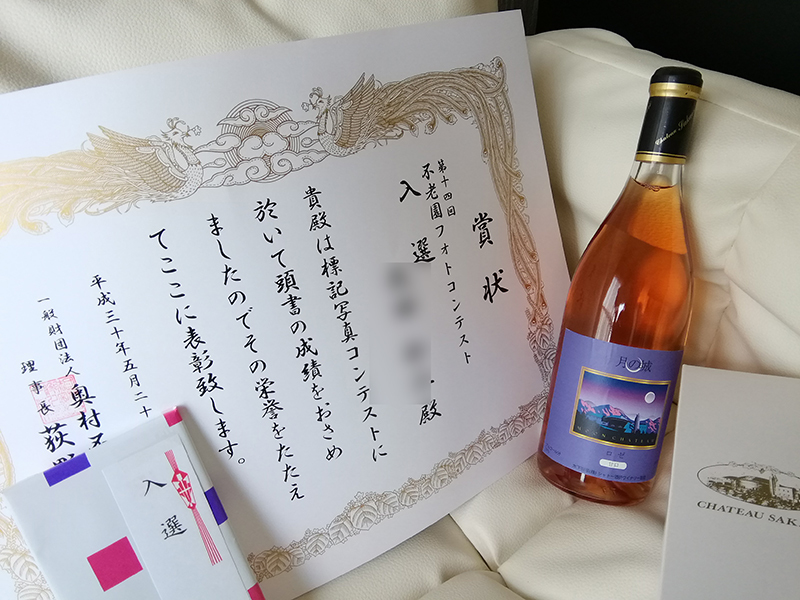 賞状
第十四回
不老園フォトコンテスト
入選
殿
貴殿は標記写真コンテストに
於いて頭書の成績をおさめ
ましたのでその栄誉をたたえ
てここに表彰致します。
平成三十年五月二十
一般財団法人 奥村
理事長 荻
入選
月の城
MOON CHATEAU
ロゼ
CHATEAU SAK